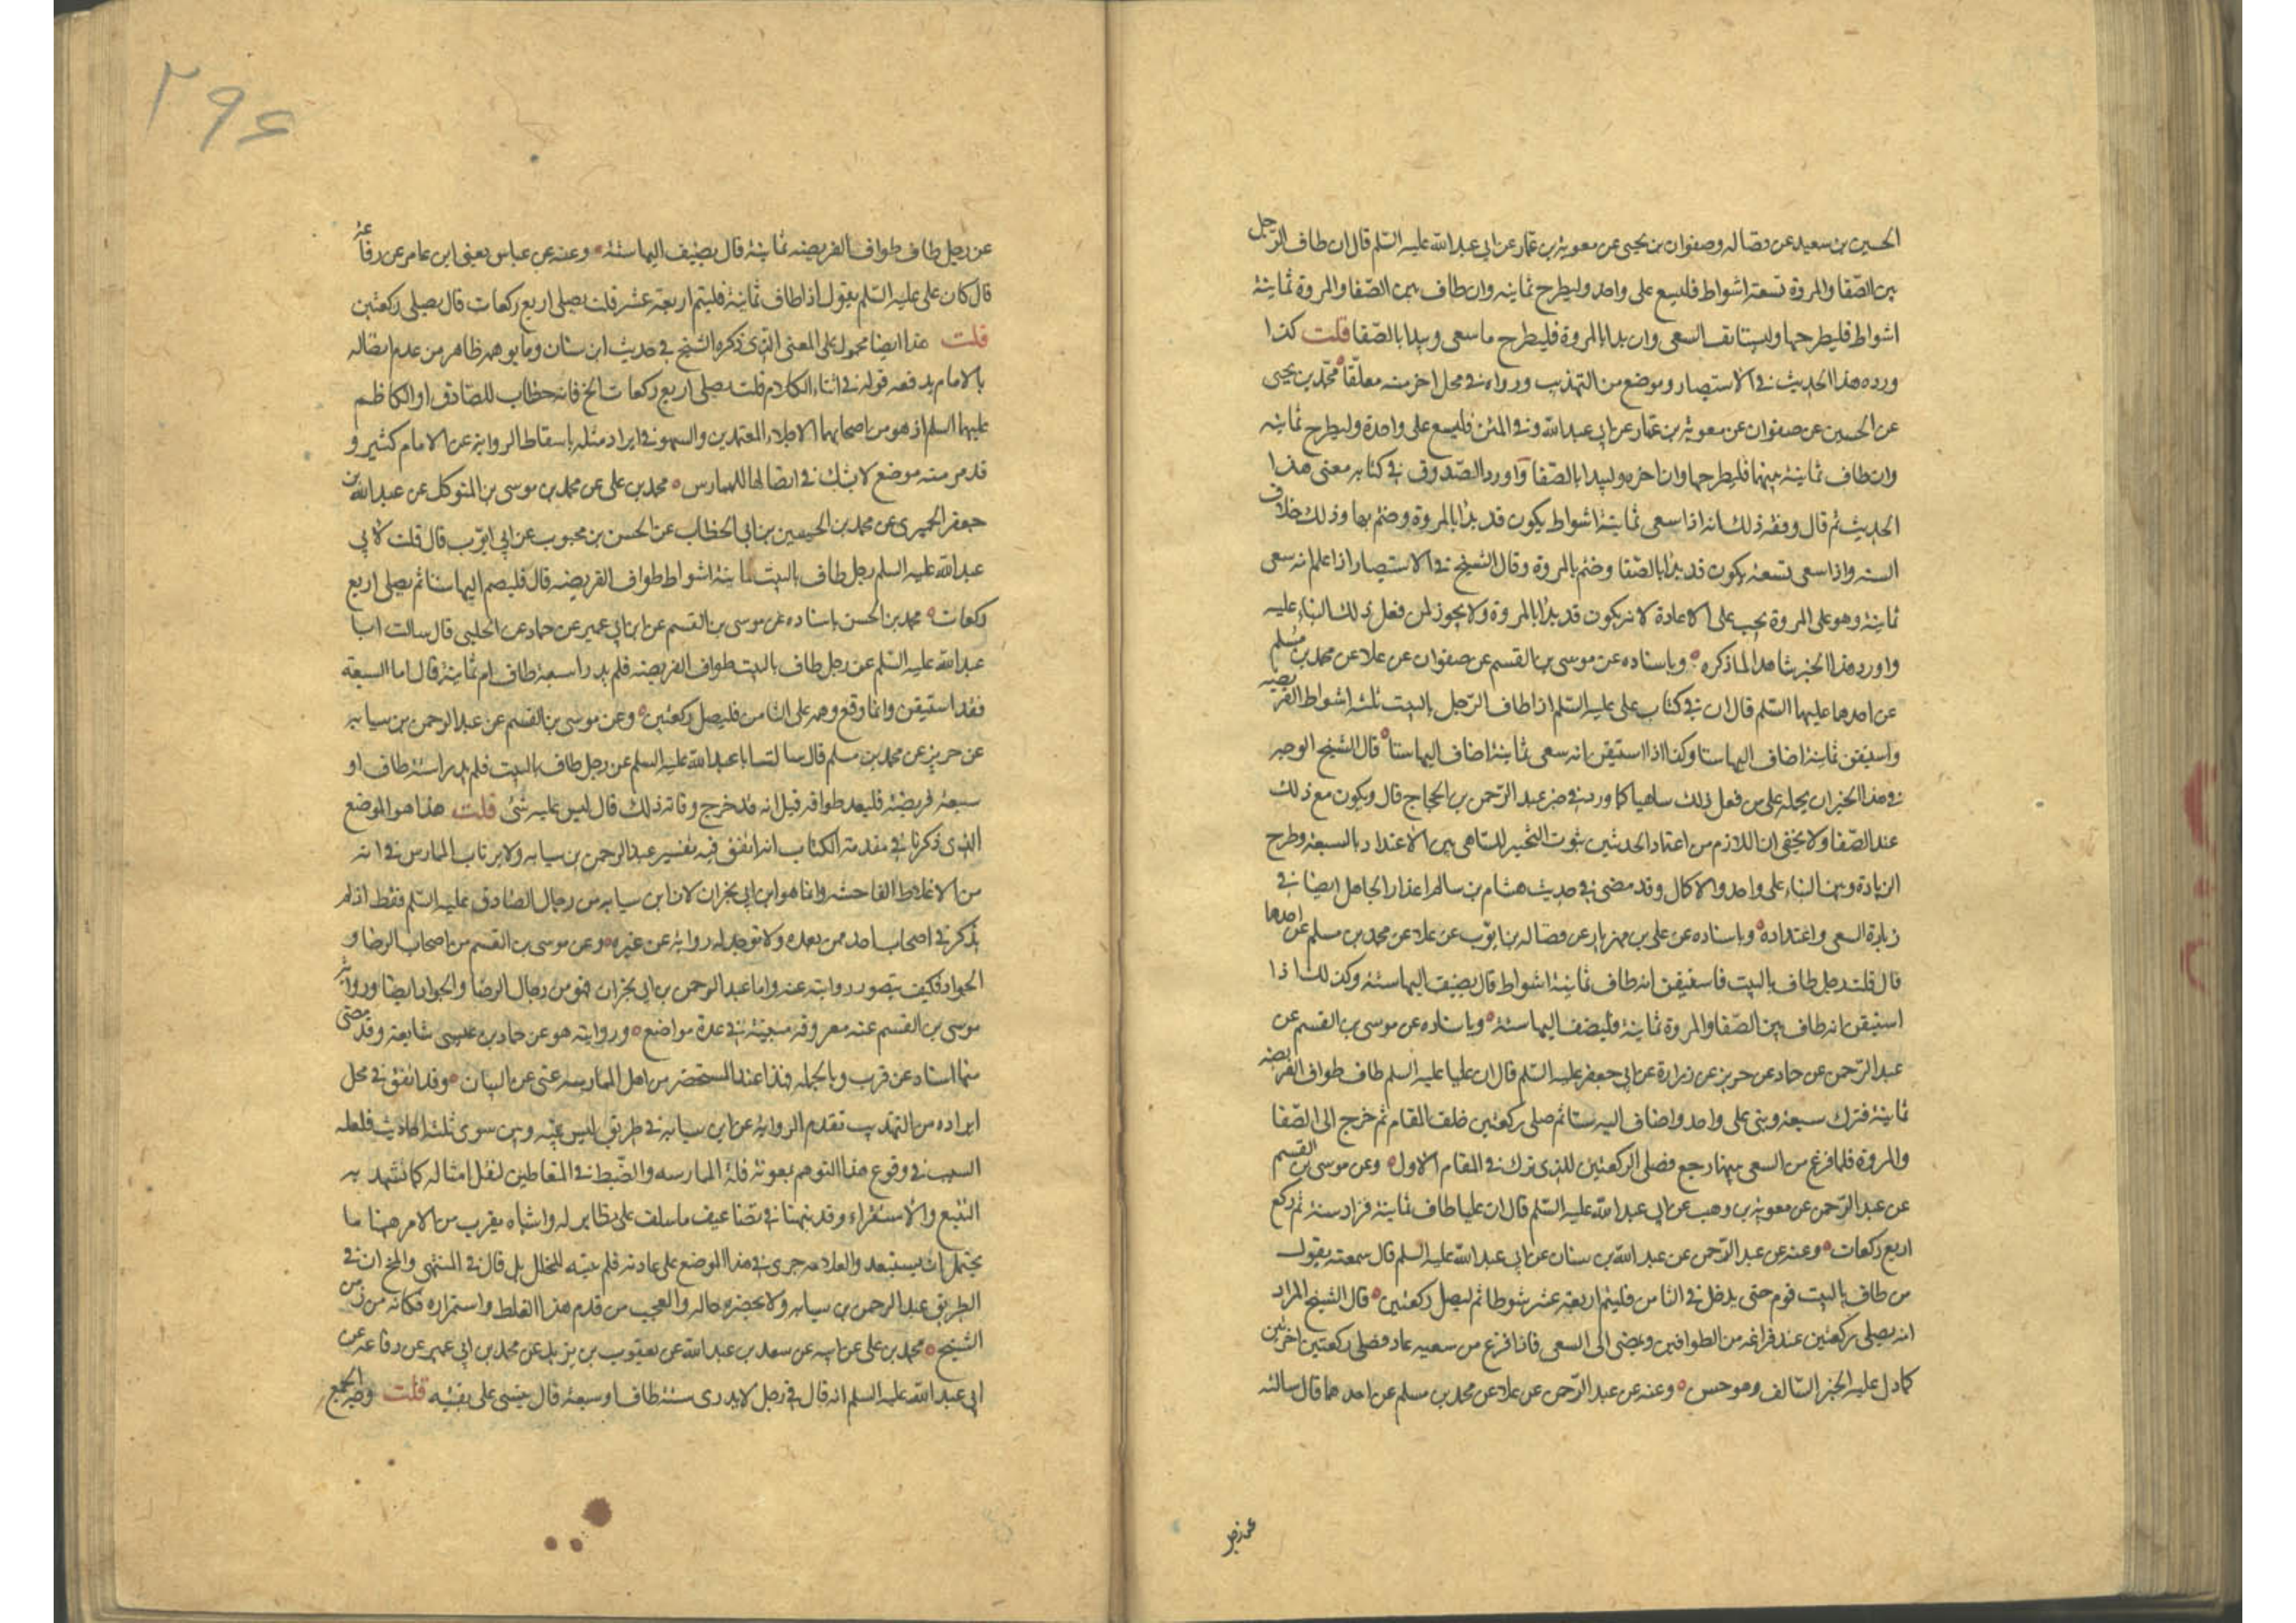 الحسين بن سعيد عن فضاله وصفوان بن يحيى عن معوية بن عمار عن ابي عبد الله عليه السّلم قال ان طاف الرّجل
بين الصّفا والمروة تسعة اشواط فليسع على واحد وليطرح ثمانيه وان طاف بين الصّفا والمروة ثمانية
اشواط فليطرحها وليستانف السعى وان بدا بالمروة فليطرح ما سعى ويبدا بالصّفا قلت كذا
ورد هذا الحديث في الاستبصار وموضع من التهذيب ورواه في محل اخر منه معلّقا محمّد بن يحيى
عن الحسين عن صفوان عن معوية بن عمار عن ابي عبد الله وفي المتن فليسع على واحدة وليطرح ثمانيه
وان طاف ثمانية بينهما فليطرحها وان اخره وليبدا بالصّفا واورد الصّدوق في كتابه معنى هذا
الحديث ثم قال وفقه ذلك انه اذا سعى ثمانية اشواط يكون قد بدا بالمروة وختم بها وذلك خلاف
السنه واذا سعى تسعة يكون قد بدا بالصّفا وختم بالمروة وقال الشيخ في الاستبصار اذا علم انه سعى
ثمانية وهو على المروة يجب على الاعادة لانه يكون قد بدا بالمروة ولا يجوز لمن فعل ذلك البناء عليه
واورد هذا الخبر شاهدا لما ذكره وباسناده عن موسى بن القسم عن صفوان عن علا عن محمد بن مسلم
عن احدهما عليهما السّلم قال ان في كتاب على عليه السّلم اذا طاف الرّجل بالبيت ثلثه اشواط الفريضه
واستيقن ثمانية اضاف اليها ستا وكذا اذا استيقن انه سعى ثمانية اضاف اليها ستا قال الشيخ الوجه
في هذا الخبر ان يحمله على من فعل ذلك ساهيا كما ورد في خبر عبد الرّحمن بن الحجاج قال ويكون مع ذلك
عند الصّفا ولا يخفى ان اللازم من اعتماد الحديثين ثبوت التخيير للساهى بين الاعتداد بالسبعة وطرح
الزيادة وبين البناء على واحد والاكمال وقد مضى في حديث هشام بن سالم اعذار الجاهل ايضا في
زيادة السعى واعتداده وباسناده عن على بن مهزيار عن فضاله بن ايوّب عن علا عن محمد بن مسلم عن احدهما
قال قلت رجل طاف بالبيت فاستيقن انه طاف ثمانية اشواط قال يضيف اليها ستة وكذلك اذا
استيقن انه طاف بين الصّفا والمروة ثمانية فليضف اليها ستة وباسناده عن موسى بن القسم عن
عبد الرّحمن عن حماد عن حريز عن زرارة عن ابي جعفر عليه السّلم قال ان عليا عليه السلم طاف طواف الفريضه
ثمانية فترك سبعة وبنى على واحد واضاف اليه ستا ثم صلى ركعتين خلف المقام ثم خرج الى الصّفا
والمروة فلما فرغ من السعى بينهما رجع فصلى الركعتين للذى ترك في المقام الاول وعن موسى بن القسم
عن عبد الرّحمن عن معوية بن وهب عن ابي عبد الله عليه السّلم قال ان عليا طاف ثمانية فزاد ستة ثم ركع
اربع ركعات وعنه عن عبد الرّحمن عن عبد الله بن سنان عن ابي عبد الله عليه السلم قال سمعته يقول
من طاف بالبيت فوهم حتى يدخل في الثامن فليتم اربعة عشر شوطا ثم ليصل ركعتين قال الشيخ المراد
انه يصلى ركعتين عند فراغه من الطوافين ويمضى الى السعى فاذا فرغ من سعيه عاد فصلى ركعتين اخرتين
كما دل عليه الخبر السّالف وهو حسن وعنه عن عبد الرّحمن عن علا عن محمد بن مسلم عن احدهما قال سالته
٢٩۶
عن رجل طاف طواف الفريضه ثمانية قال يضيف اليها ستة وعنه عن عباس يعنى ابن عامر عن رفاعة
قال كان على عليه السّلم يقول اذا طاف ثمانية فليتم اربعة عشر قلت يصلى اربع ركعات قال يصلى ركعتين
قلت هذا ايضا محمول على المعنى الذى ذكره الشيخ في حديث ابن سنان وما يوهمه ظاهره من عدم اتصاله
بالامام يدفعه قوله في اثناء الكلام قلت يصلى اربع ركعات الخ فانه خطاب للصّادق او الكاظم
عليهما السلم اذ هو من اصحابهما الاجلاء المعتمدين والسهو في ايراد مثله باسقاط الرواية عن الامام كثير و
قد مر منه موضع لا يشك في اتصالها الممارس محمد بن على عن محمد بن موسى بن المتوكل عن عبد الله بن
جعفر الحميرى عن محمد بن الحسين بن ابي الخطاب عن الحسن بن محبوب عن ابي ايوّب قال قلت لابي
عبد الله عليه السلم رجل طاف بالبيت ثمانية اشواط طواف الفريضه قال فليضم اليها ستا ثم يصلى اربع
ركعات محمد بن الحسن باسناده عن موسى بن القسم عن ابن ابي عمير عن حماد عن الحلبى قال سالت ابا
عبد الله عليه السّلم عن رجل طاف بالبيت طواف الفريضه فلم يدر اسبعة طاف ام ثمانية قال اما السبعة
فقد استيقن وانما وقع وهمه على الثامن فليصل ركعتين وعن موسى بن القسم عن عبد الرحمن بن سيابه
عن حريز عن محمد بن مسلم قال سالت ابا عبد الله عليه السلم عن رجل طاف بالبيت فلم يدر استة طاف او
سبعة فريضة فليعد طوافه قيل انه قد خرج وفاته ذلك قال ليس عليه شئ قلت هذا هو الموضع
الذى ذكرنا في مقدمة الكتاب انه اتفق فيه تفسير عبد الرحمن بن سيابه ولا يرتاب الممارس في انه
من الاغلاط الفاحشة وانما هو ابن ابي نجران لان ابن سيابه من رجال الصّادق عليه السّلم فقط اذ لم
يذكر في اصحاب احد ممن بعده ولا توجد له رواية عن غيره وعن موسى بن القسم من اصحاب الرضا و
الجواد فكيف يتصور روايته عنه واما عبد الرحمن بن ابي نجران فهو من رجال الرضا والجواد ايضا ورواية
موسى بن القسم عنه معروفة مبينة في عدة مواضع وروايته هو عن حماد بن عيسى شايعة وقد مضى
منها اسناد عن قرب وبالجمله فهذا عند المستحضر من اهل الممارسه غنى عن البيان وقد اتفق في محل
ايراده من التهذيب تقدم الرواية عن ابن سيابه في طريق ليس بينه وبين سوى ثلثة احاديث فلعله
السبب في وقوع هذا التوهم بمعونة قلة الممارسه والضّبط في المتعاطين لنقل امثاله كما يشهد به
التتبع والاستقراء وقد نبهنا في تضاعيف ما سلف على نظاير له واشباه يقرب من الامر هنا ما
يحتمل ان يستبعد والعلامه جرى في هذا الموضع على عادته فلم يتنبه للخلل بل قال في المنتهى والمخ ان في
الطريق عبد الرحمن بن سيابه ولا يحضره حاله والعجب من قدم هذا الغلط واستمراره فكانه من زمن
الشيخ محمد بن على عن ابيه عن سعد بن عبد الله عن يعقوب بن يزيد عن محمد بن ابي عمير عن رفاعه عن
ابي عبد الله عليه السلم انه قال في رجل لا يدرى ستة طاف او سبعة قال يبنى على يقينه قلت وجه الجمع